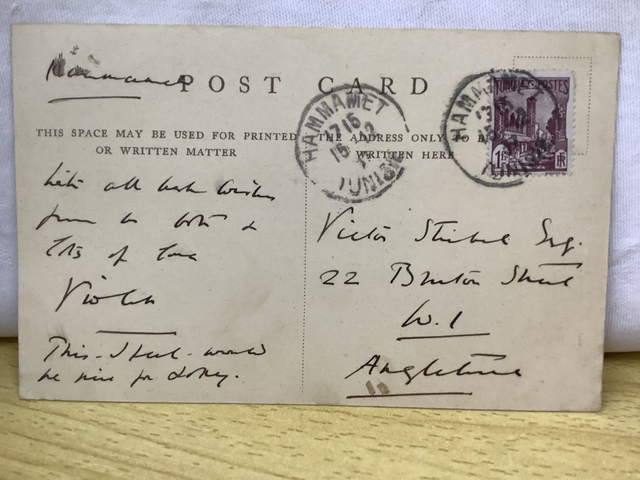 Hammamet
POST CARD
THIS SPACE MAY BE USED FOR PRINTED
OR WRITTEN MATTER
THE ADDRESS ONLY TO BE
WRITTEN HERE
HAMMAMET
TUNISIE
HAMMAMET
POSTES
With all best wishes
from
of love
Violet
This would
be nice for
Victor Stiebel Esq.
22 Bruton Street
W.1
Angleterre